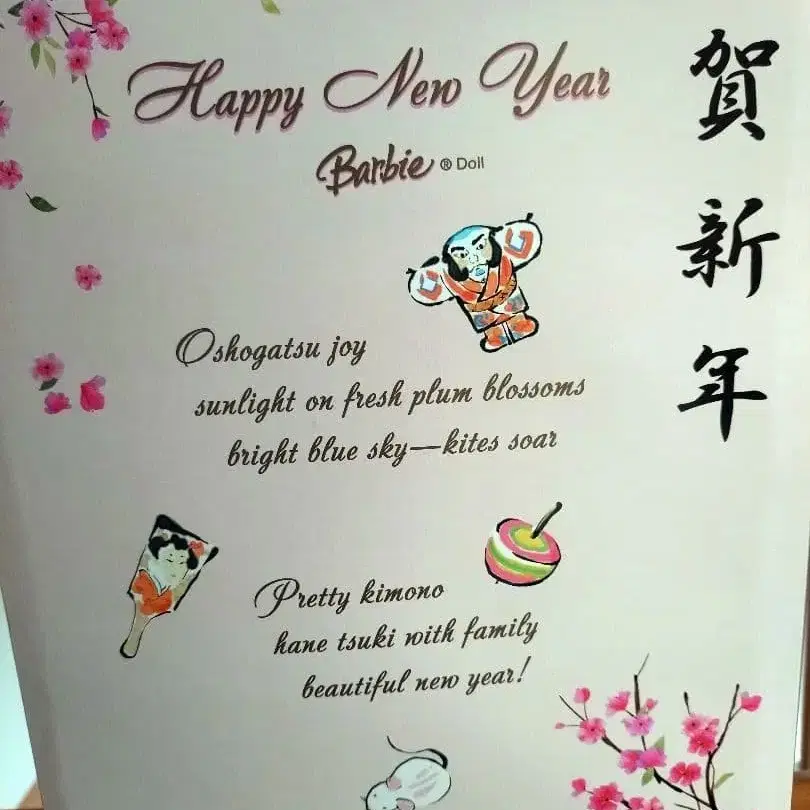 Happy New Year
Barbie® Doll
賀新年
Oshogatsu joy
sunlight on fresh plum blossoms
bright blue sky—kites soar
Pretty kimono
hane tsuki with family
beautiful new year!